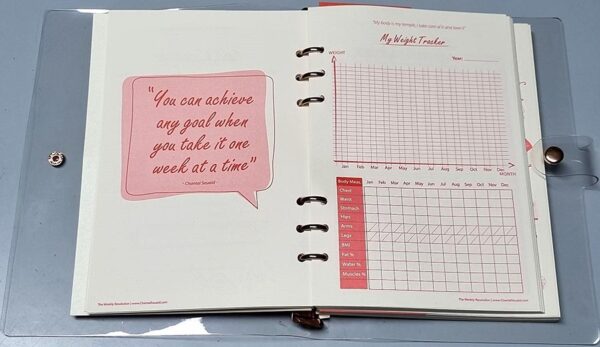 "You can achieve
any goal when
you take it one
week at a time"
- Chantal Seuald -
The Weekly Resolution | www.ChantalSeuald.com
"My body is my temple, I take care of it and love it"
My Weight Tracker
WEIGHT
Year:
Jan Feb Mar Apr May Jun Jul Aug Sep Oct Nov Dec
MONTH
Body Meas. Jan Feb Mar Apr May Jun Jul Aug Sep Oct Nov Dec
Chest
Waist
Stomach
Hips
Arms
Legs
BMI
Fat %
Water %
Muscles %
The Weekly Resolution | www.ChantalSeuald.com